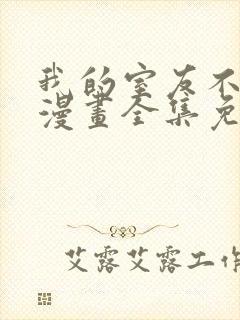 我的室友不
漫畫全集免
艾露艾露工作